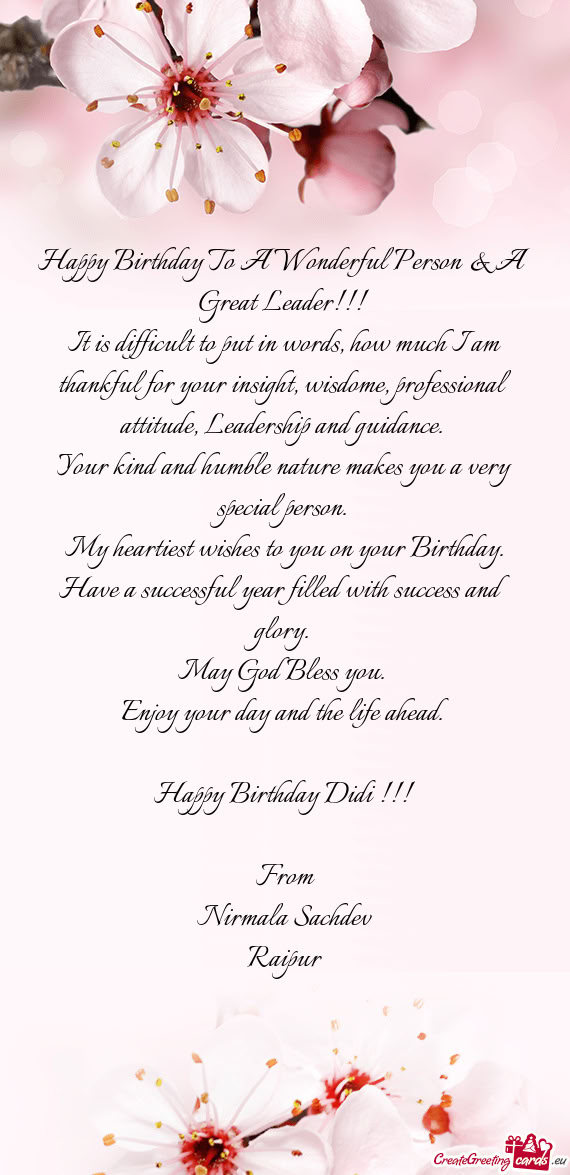 Happy Birthday To A Wonderful Person & A
Great Leader!!!
It is difficult to put in words, how much I am
thankful for your insight, wisdome, professional
attitude, Leadership and guidance.
Your kind and humble nature makes you a very
special person.
My heartiest wishes to you on your Birthday.
Have a successful year filled with success and
glory.
May God Bless you.
Enjoy your day and the life ahead.
Happy Birthday Didi !!!
From
Nirmala Sachdev
Raipur
CreateGreeting cards .eu